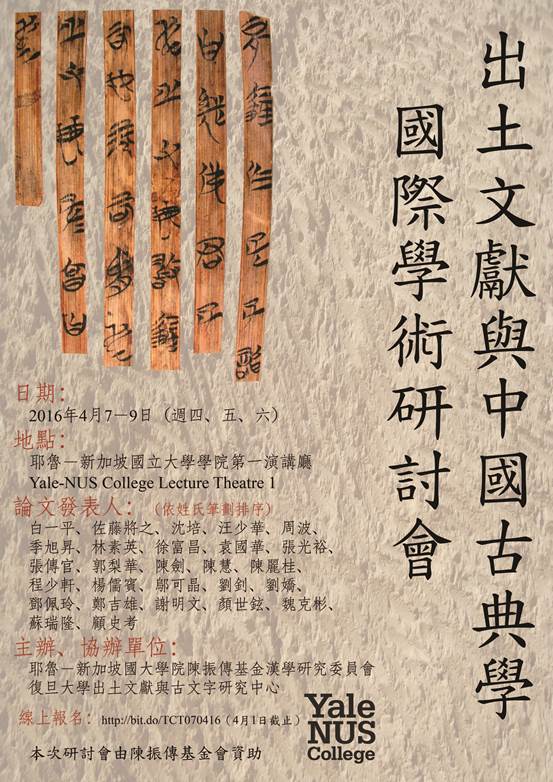 出土文獻與中國古典學
國際學術研討會
日期：
2016年4月7－9日（週四、五、六）
地點：
耶魯－新加坡國立大學學院第一演講廳
Yale-NUS College Lecture Theatre 1
論文發表人：（依姓氏筆劃排序）
白一平、佐藤將之、沈培、汪少華、周波、
季旭昇、林素英、徐富昌、袁國華、張光裕、
張傳官、郭梨華、陳劍、陳慧、陳麗桂、
程少軒、楊儒賓、鄔可晶、劉釗、劉嬌、
鄧佩玲、鄭吉雄、謝明文、顏世鉉、魏克彬、
蘇瑞隆、顧史考
主辦、協辦單位：
耶魯－新加坡國大學院陳振傳基金漢學研究委員會
復旦大學出土文獻與古文字研究中心
線上報名：http://bit.do/TCT070416（4月1日截止）
本次研討會由陳振傳基金會資助
Yale
NUS
College